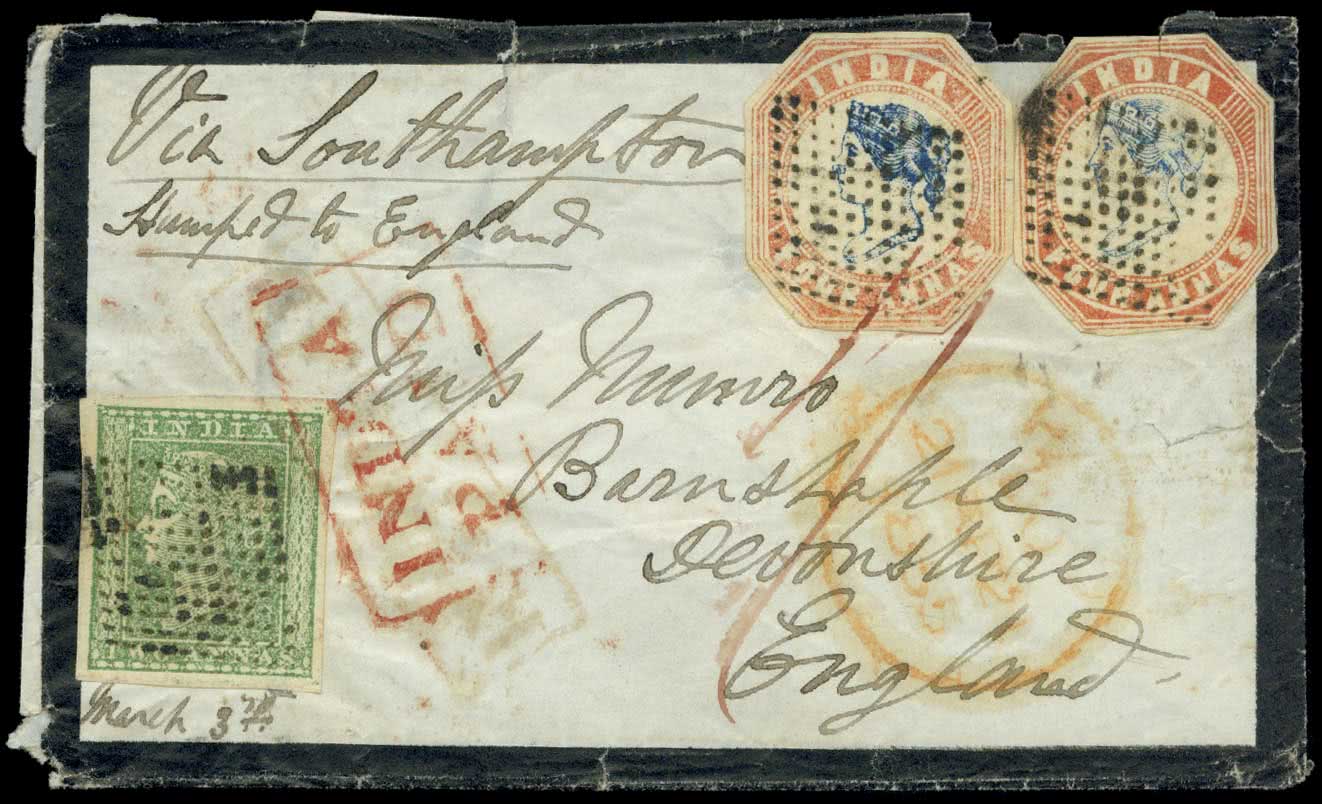 Via Southampton
Stamped to England
INDIA
FOUR ANNAS
INDIA
FOUR ANNAS
Miss Munro
Barnstaple
Devonshire
England
INDIA
ANNAS
March 3rd
INDIA
PAID